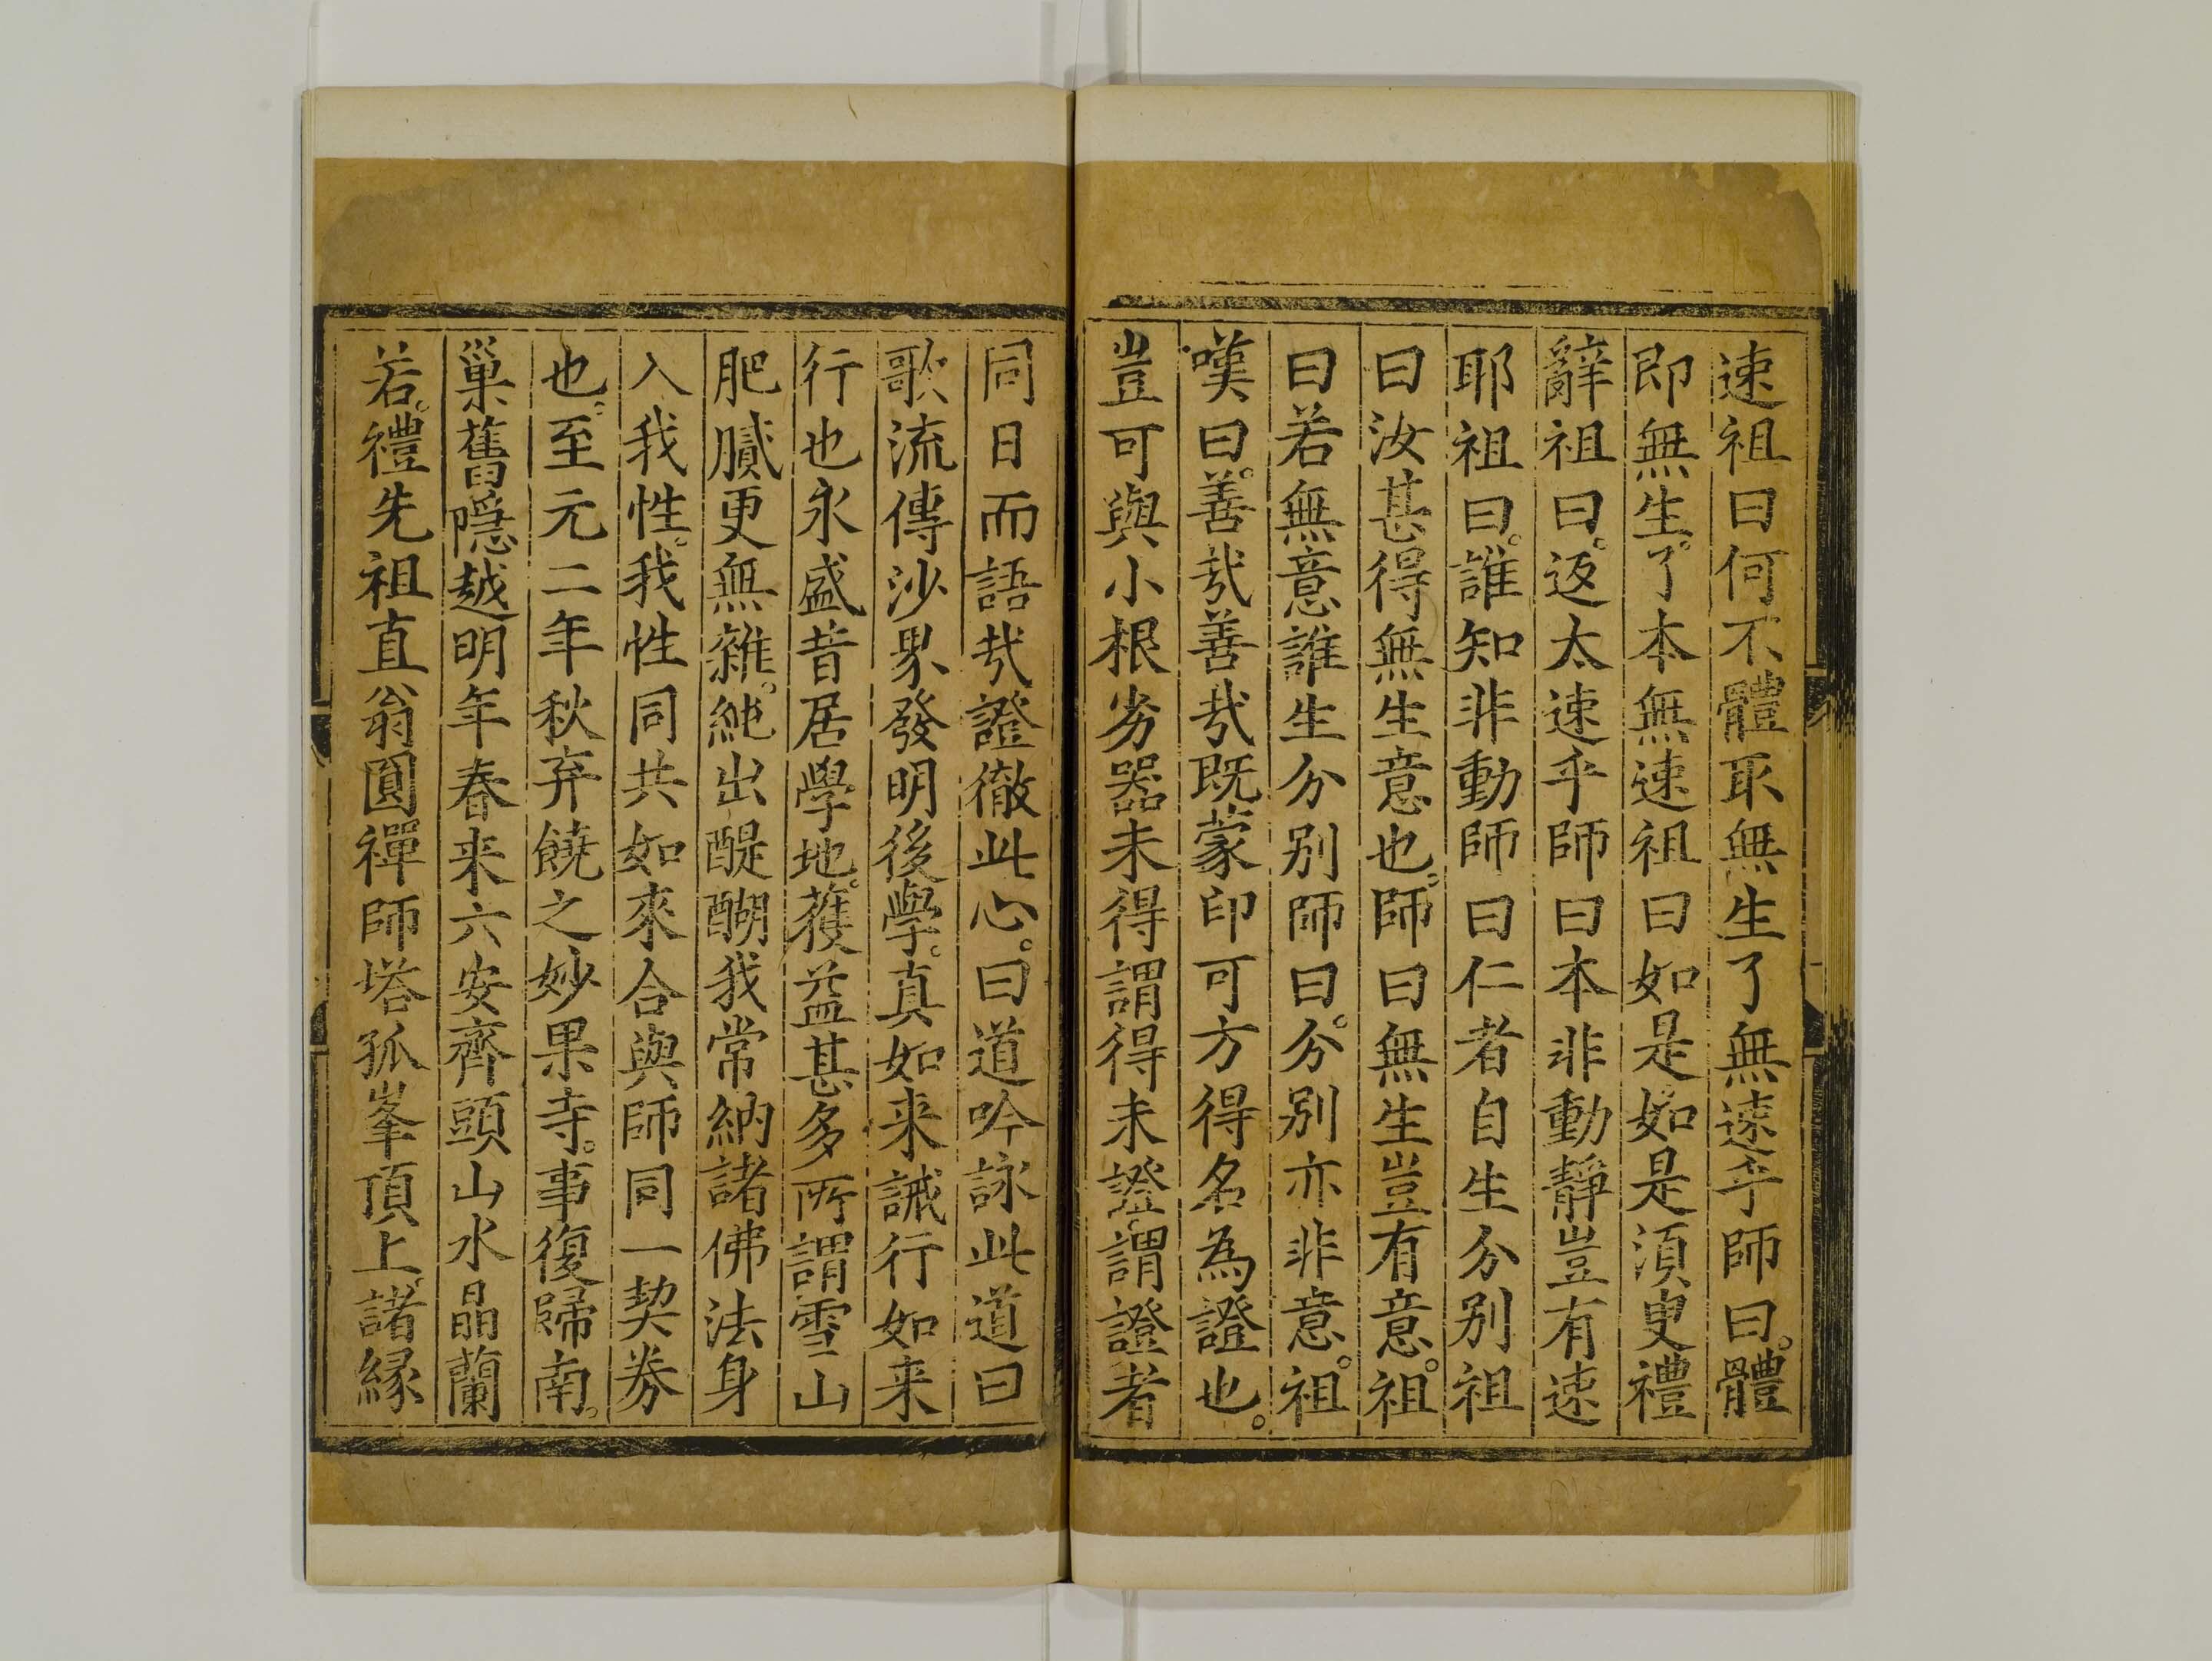 速祖曰何不體取無生了無速乎師曰。體
即無生。了本無速祖曰如是如是須臾禮
辭祖曰。返太速乎師曰本非動靜豈有速
耶祖曰。誰知非動師曰仁者自生分别祖
曰汝甚得無生意也。師曰無生豈有意。祖
曰若無意誰生分别師曰。分别亦非意。祖
嘆曰。善㢤善㢤既蒙印可方得名為證也。
豈可與小根劣器未得謂得未證謂證者
同日而語㢤證徹此心。曰道吟詠此道曰
歌流傳沙界發明後學。真如来誡行如来
行也永盛昔居學地。獲益甚多所謂雪山
肥膩更無雜。純出醍醐我常納諸佛法身
入我性。我性同共如來合與師同一契券
也。至元二年秋弃饒之妙果寺。事復歸南。
巢舊隠越明年春来六安齊頭山水晶蘭
若。禮先祖直翁圓禪師塔孤峯頂上。諸縁